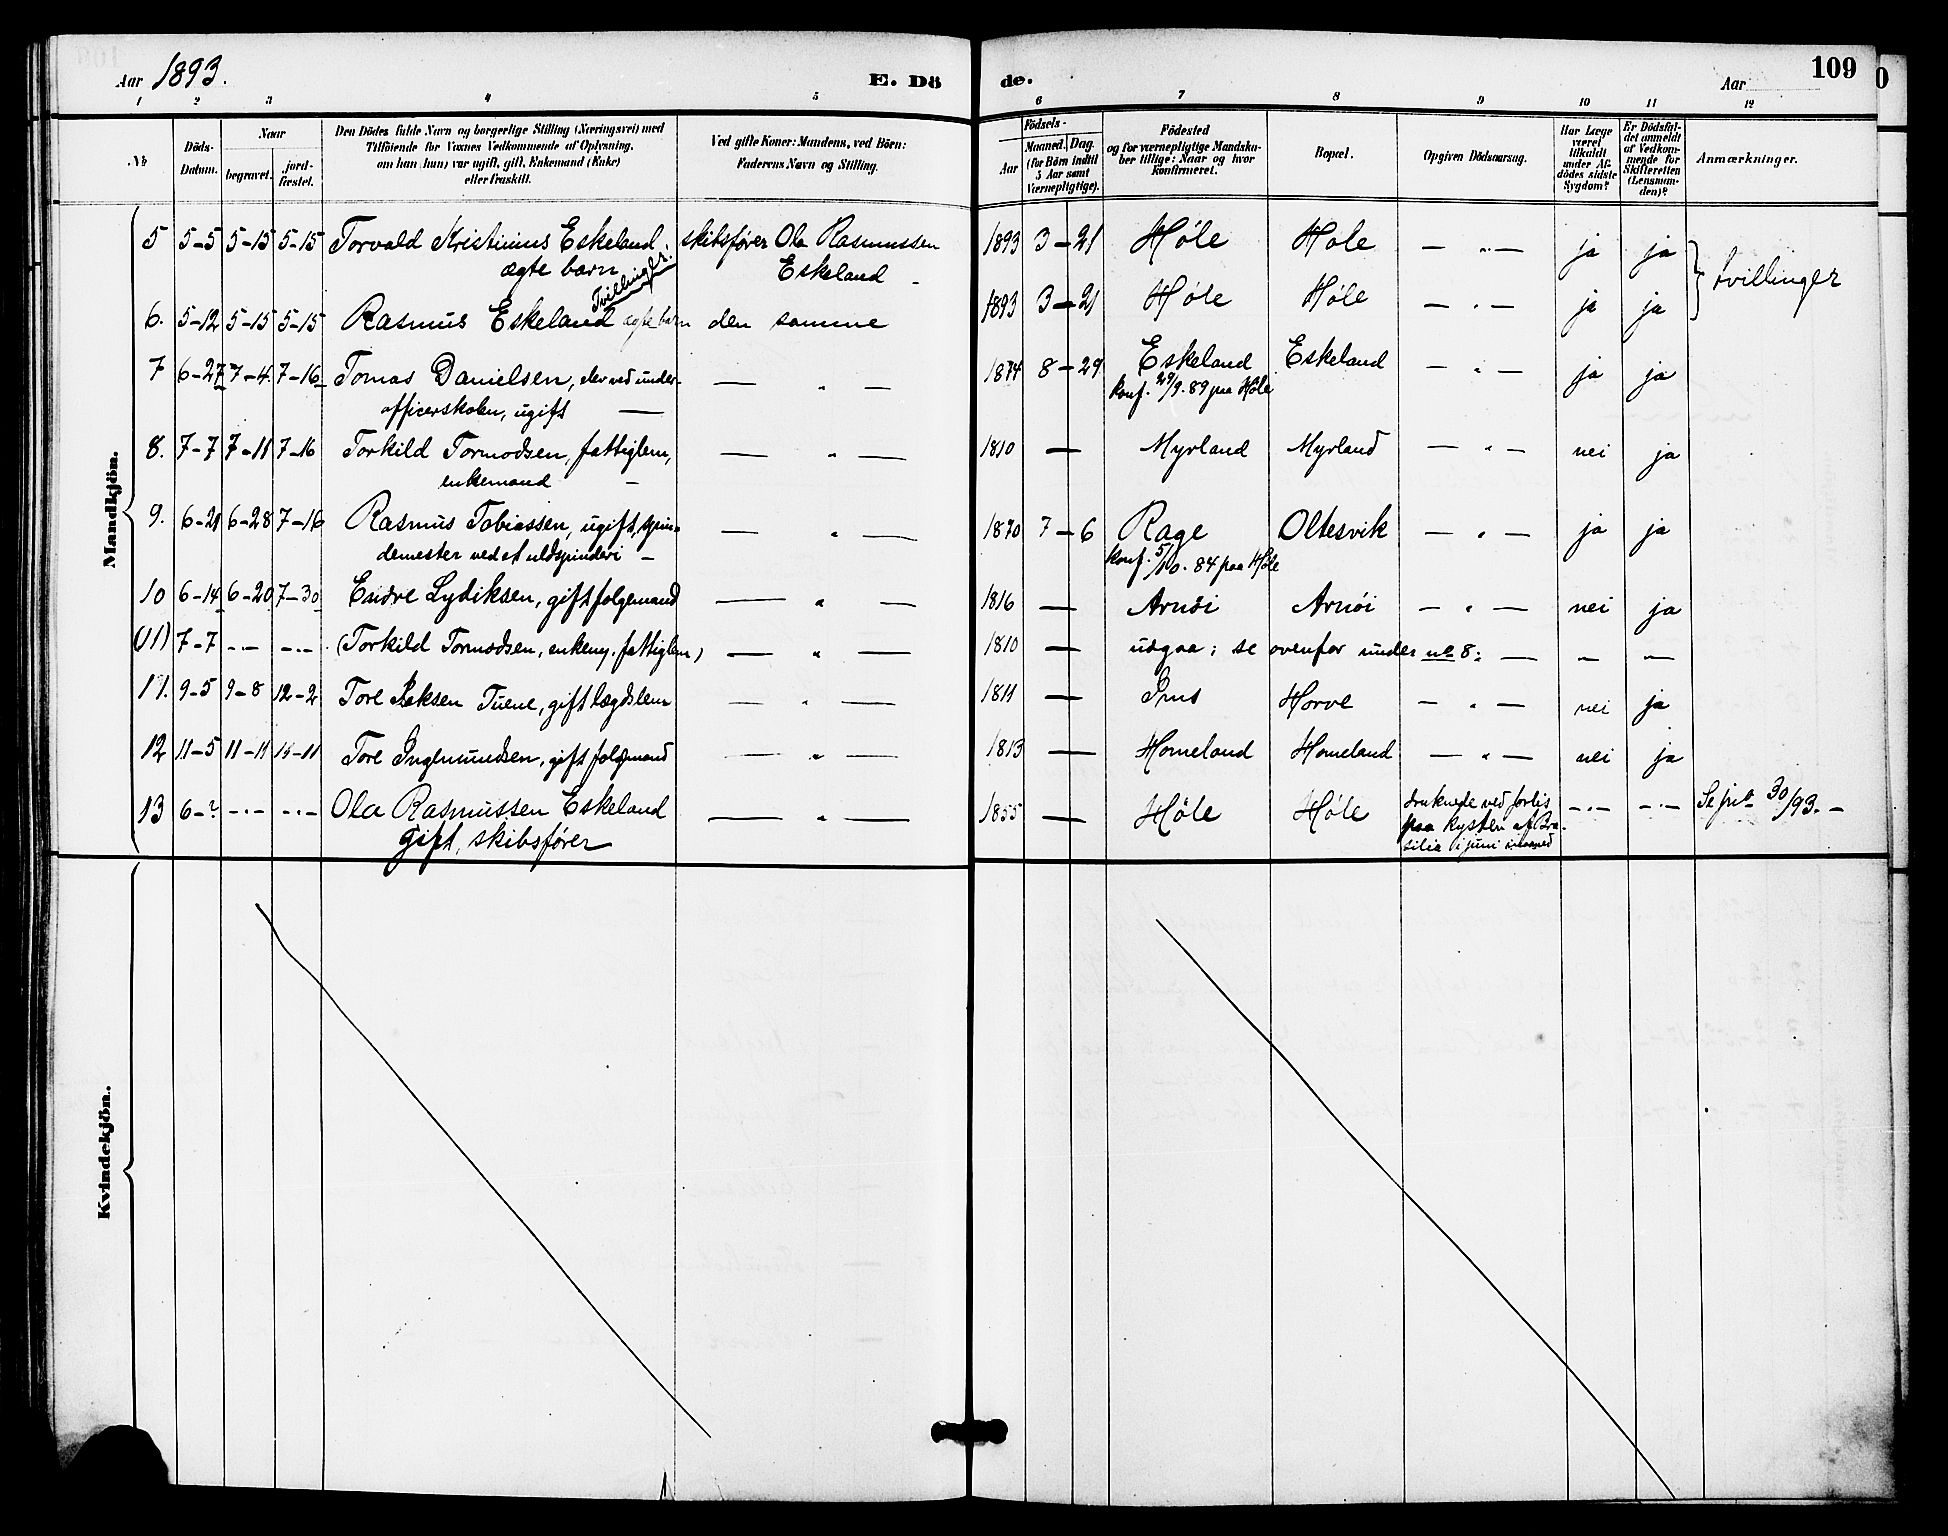 Aar 1893.
E. Dö
de.
Aar
109
1 2 3 4 5 6 7 8 9 10 11 12
№
Döds-Datum.
Naar
begravet.
jord-fæstet.
Den Dödes fulde Navn og borgerlige Stilling (Næringsvei) med
Tilföiende for Voxnes Vedkommende af Oplysning,
om han (hun) var ugift, gift, Enkemand (Enke)
eller fraskilt.
Ved gifte Koner: Mandens, ved Börn:
Faderens Navn og Stilling.
Födsels-
Aar
Maaned. Dag.
(for Börn indtil
5 Aar samt
Værnepligtige).
Födested
og for værnepligtige Mandska-
ber tillige: Naar og hvor
konfirmeret.
Bopæl.
Opgiven Dödsaarsag.
Har Læge
været
tilkaldt
under Af-
dödes sidste
Sygdom?
Er Dödsfal-
det anmeldt
af Vedkom-
mende for
Skifteretten
(Lensman-
den)?
Anmærkninger.
Mandkjön.
5 5-5 5-15 5-15 Torvald Kristinius Eskeland. skibsfører Ola Rasmussen 1893 3-21 Høle Høle — " — ja ja
ægte barn Eskeland
Tvillinger.
tvillinger
6. 5-12 5-15 5-15 Rasmus Eskeland ægte barn den samme 1893 3-21 Høle Høle — " — ja ja
7 6-27 7-4. 7-16 Tomas Danielsen, elev ved under- — " — 1874 8-29 Eskeland Eskeland — " — ja ja
officerskolen, ugift — konf. 29/9.89 paa Høle
8. 7-7 7-11 7-16 Torkild Tormodsen, fattiglem, — " — 1810 — Myrland Myrland — " — nei ja
enkemand —
9. 6-21 6-28 7-16 Rasmus Tobiassen, ugift, spin- — " — 1870 7-6 Rage Oltesvik — " — ja ja
demester ved et uldspinderi — konf. 5/10.84 paa Høle
10 6-14 6-20 7-30 Endre Lydiksen, gift folgemand — " — 1816 — Arnöi Arnöi — " — nei ja
(11) 7-7 -"- -"- (Torkild Tormodsen, enkem. fattiglem) — " — 1810 — udgaa; se ovenfor under no 8: — — —
11. 9-5 9-8 12-2 Tore Tuene, gift lægdslem — " — 1811 — Ims Horve — " — nei ja
12 11-5 11-11 11-11 Tore Ingemundsen, gift folgemand — " — 1813 — Homeland Homeland — " — nei ja
13 6-? -"- -"- Ola Rasmussen Eskeland — " — 1855 — Høle Høle druknede ved forlis -"- -"- Se jno 30/93. —
gift, skibsfører paa kysten af Bra-
silia i juni maaned
Kvindekjön.